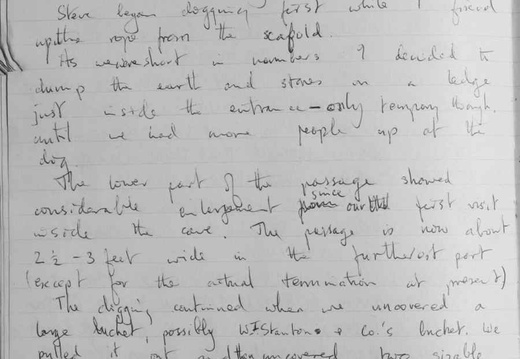 Steve began digging first while I
up the rope from the scafold.
As we were short in numbers I decided to
dump the earth and stones on a ledge
just inside the entrance - only temporary though.
until we had more people up at the
dig.
The lower part of the passage showed
considerable enlargement since our first visit
inside the cave. The passage is now about
2½ - 3 feet wide in the furtherest part
(except for the actual termination at present)
The digging continued when we uncovered a
large bucket, possibly W I Stanton & Co.'s bucket. We
pulled it out and then uncovered two sizable